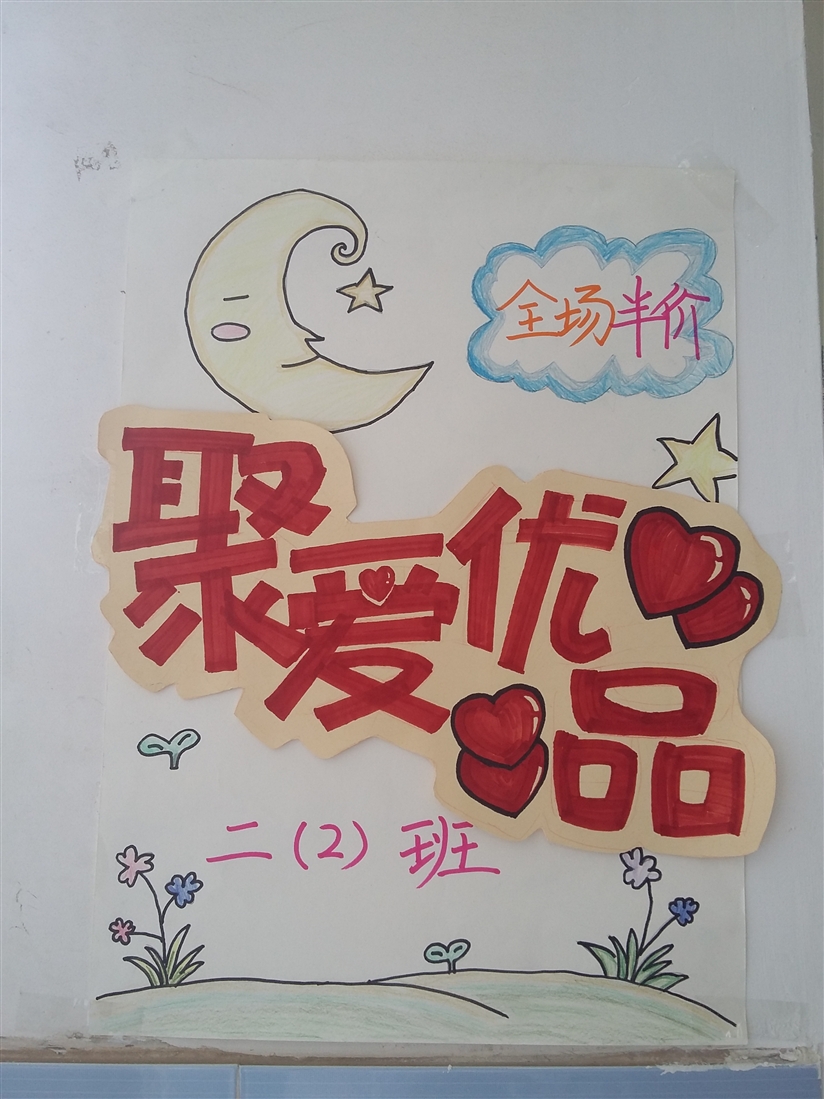 全场半价
聚爱优品
二(2)班